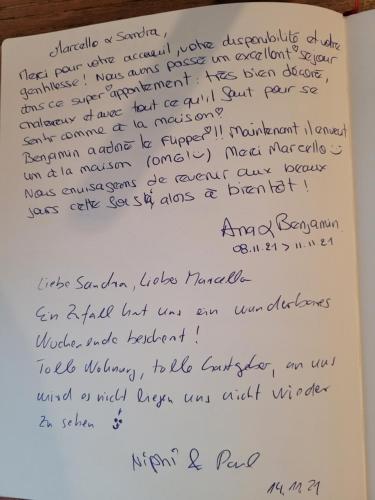 Marcello & Sandra,
Merci pour votre accueil, votre disponibilité et votre
gentillesse ! Nous avons passé un excellent séjour
dans ce super appartement : très bien décoré,
chaleureux et avec tout ce qu'il faut pour se
sentir comme à la maison♡
Benjamin a adoré le Flipper♡!! Maintenant il en veut
un à la maison (OMG!☺) Merci Marcello☺
Nous envisageons de revenir aux beaux
jours cette fois ci, alors à bientôt !
Ana & Benjamin
08.11.21 > 11.11.21
Liebe Sandra, Lieber Marcello
Ein Zufall hat uns ein wunderbares
Wochenende beschert !
Tolle Wohnung, tolle Gastgeber, an uns
wird es nicht liegen uns nicht wieder
zu sehen
& Paul
14.11.21